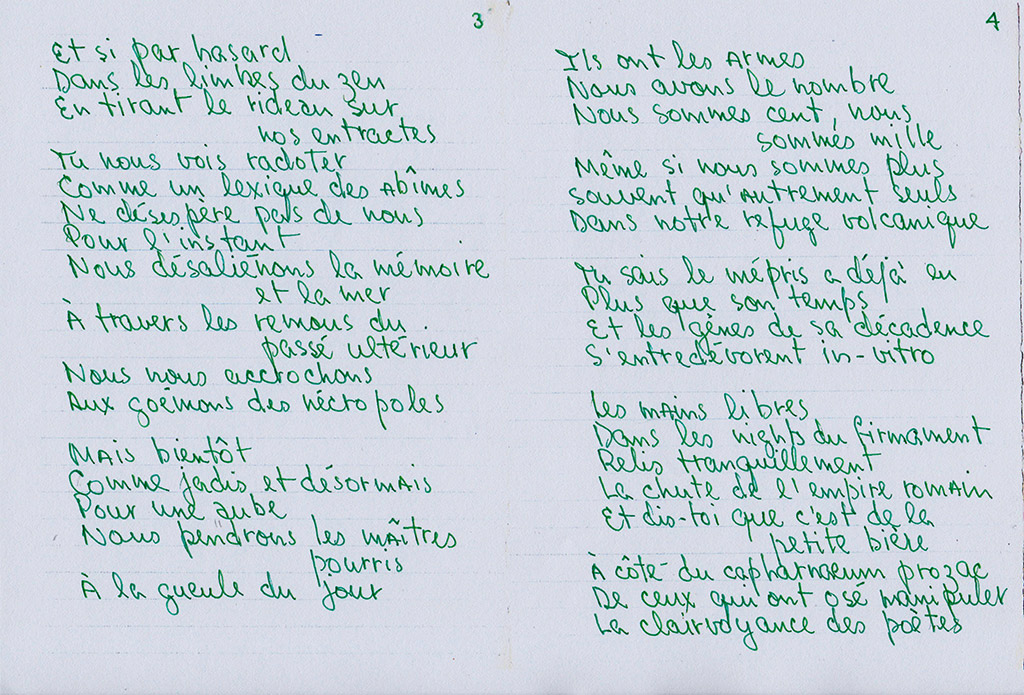 3
Et si par hasard
Dans les limbes du zen
En tirant le rideau sur
nos entractes
Tu nous vois radoter
Comme un lexique des Abîmes
Ne désespère pas de nous
Pour l'instant
Nous désaliénons la mémoire
et la mer
À travers les remous du
passé ultérieur
Nous nous accrochons
Aux goémons des nécropoles
Mais bientôt
Comme jadis et désormais
Pour une aube
Nous pendrons les maîtres
pourris
À la gueule du jour
4
Ils ont les Armes
Nous avons le nombre
Nous sommes cent, nous
sommes mille
Même si nous sommes plus
souvent qu'Autrement seuls
Dans notre refuge volcanique
Tu sais le mépris a déjà eu
Plus que son temps
Et les gènes de sa décadence
S'entredévorent in-vitro
Les mains libres
Dans les nights du firmament
Relis tranquillement
La chute de l'empire romain
Et dis-toi que c'est de la
petite bière
À côté du capharnaeum prozac
De ceux qui ont osé manipuler
La clairvoyance des poètes